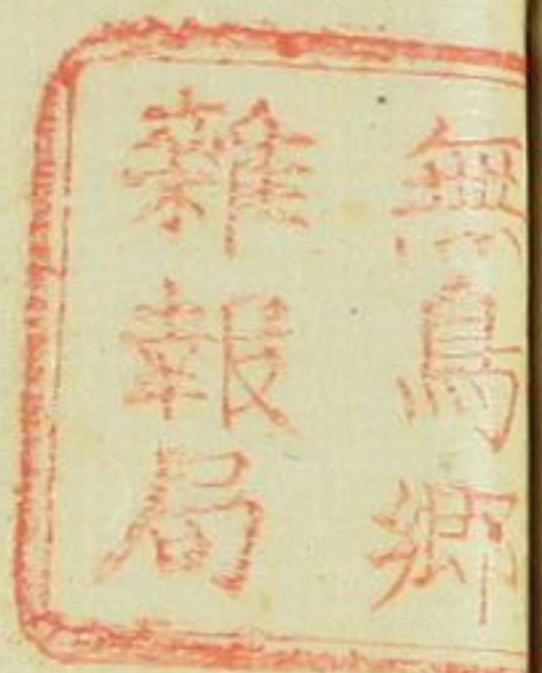 無鳥郷
雜報局